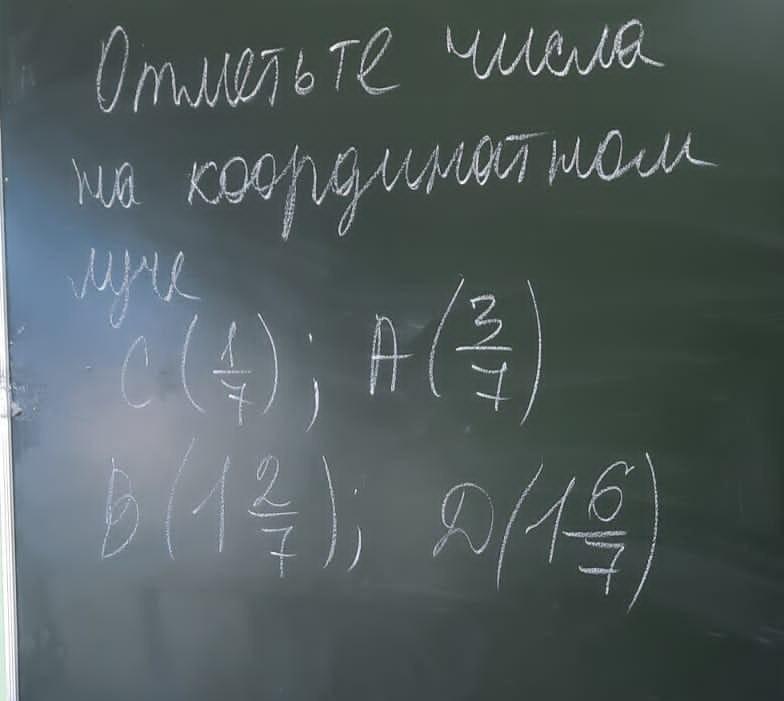 Отметьте числа
на координатном
луче
C (1/7); A (3/7)
B (1 2/7); D (1 6/7)